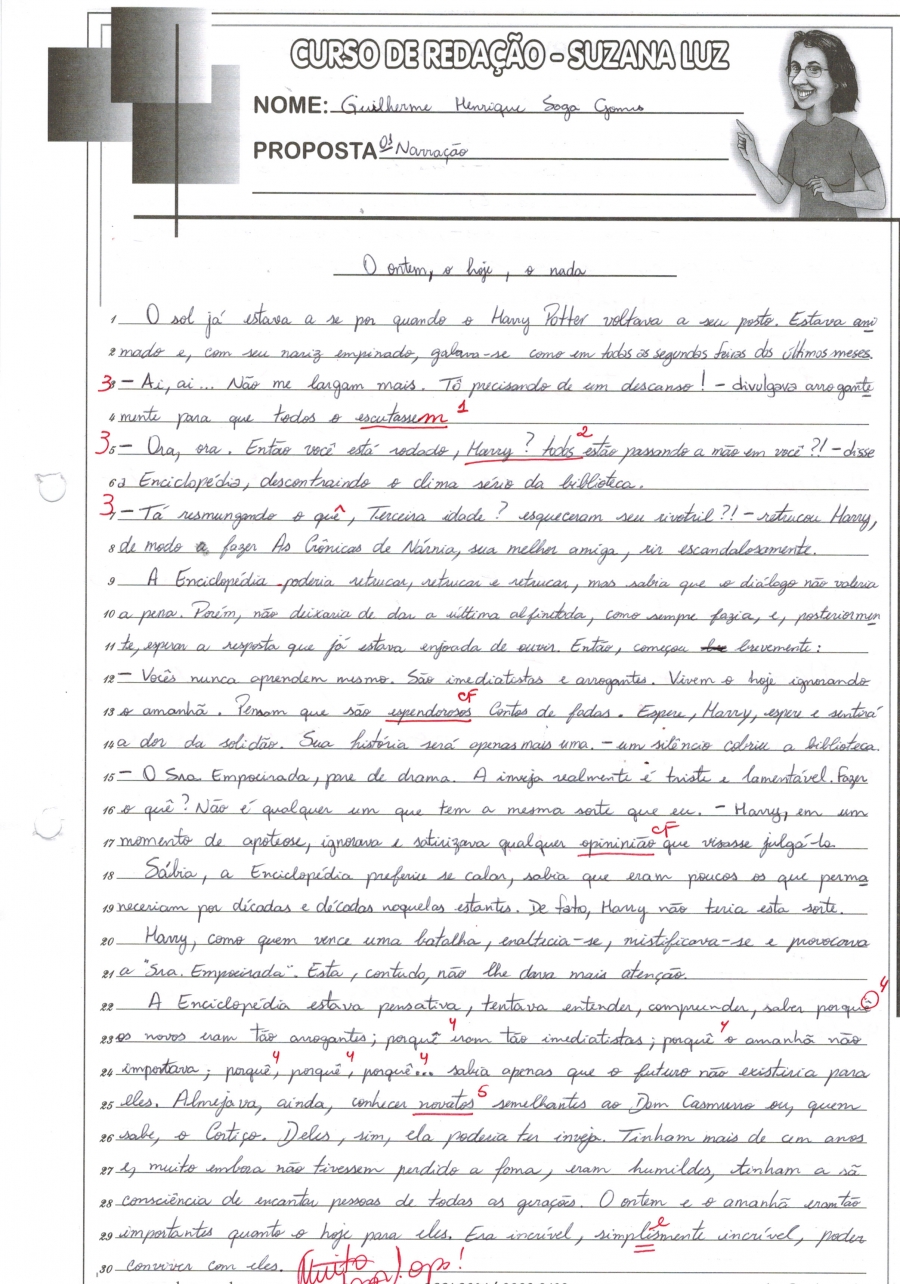 CURSO DE REDAÇÃO - SUZANA LUZ
NOME: Guilherme Henrique Soga Gomes
PROPOSTA 01 Narração
O ontem, o hoje, o nada
1 O sol já estava a se por quando o Harry Potter voltava a seu posto. Estava ani
2 mado e, com seu nariz empinado, gabava-se como em todas as segundas feiras dos últimos meses.
3 3 - Ai, ai... Não me largam mais. Tô precisando de um descanso! - divulgava arrogante
4 mente para que todos o escutassem 1
3 5 - Ora, ora. Então você está rodado, Harry? todos 2 estão passando a mão em você?! - disse
6 a Enciclopédia, descontraindo o clima sério da biblioteca.
3 7 - Tá resmungando o quê, Terceira idade? esqueceram seu rivotril?! - retrucou Harry,
8 de modo a fazer As Crônicas de Nárnia, sua melhor amiga, rir escandalosamente.
9 A Enciclopédia poderia retrucar, retrucar e retrucar, mas sabia que o diálogo não valeria
10 a pena. Porém, não deixaria de dar a última alfinetada, como sempre fazia, e, posteriormen
11 te, esperar a resposta que já estava enjoada de ouvir. Então, começou brevemente:
12 - Vocês nunca aprendem mesmo. São imediatistas e arrogantes. Vivem o hoje ignorando
13 o amanhã. Pensam que são espendorosos CF Contos de fadas. Espere, Harry, espere e sentirá
14 a dor da solidão. Sua história será apenas mais uma. - um silêncio cobriu a biblioteca.
15 - O Sra. Empoeirada, pare de drama. A inveja realmente é triste e lamentável. Fazer
16 o quê? Não é qualquer um que tem a mesma sorte que eu. - Harry, em um
17 momento de apoteose, ignorava e satirizava qualquer opininião CF que visasse julgá-lo.
18 Sábia, a Enciclopédia preferiu se calar, sabia que eram poucos os que perma
19 neceriam por décadas e décadas naquelas estantes. De fato, Harry não teria esta sorte.
20 Harry, como quem vence uma batalha, enaltecia-se, mistificava-se e provocava
21 a "Sra. Empoeirada". Esta, contudo, não lhe dava mais atenção.
22 A Enciclopédia estava pensativa, tentava entender, compreender, saber porquê 4
23 os novos eram tão arrogantes; porquê 4 eram tão imediatistas; porquê 4 o amanhã não
24 importava; porquê, 4 porquê, 4 porquê... 4 sabia apenas que o futuro não existiria para
25 eles. Almejava, ainda, conhecer novatos 5 semelhantes ao Dom Casmurro ou, quem
26 sabe, o Cortiço. Deles, sim, ela poderia ter inveja. Tinham mais de cem anos
27 e, muito embora não tivessem perdido a fama, eram humildes, tinham a sã
28 consciência de encantar pessoas de todas as gerações. O ontem e o amanhã eram tão
29 importantes quanto o hoje para eles. Era incrível, simplismente e incrível, poder
30 conviver com eles. Muito